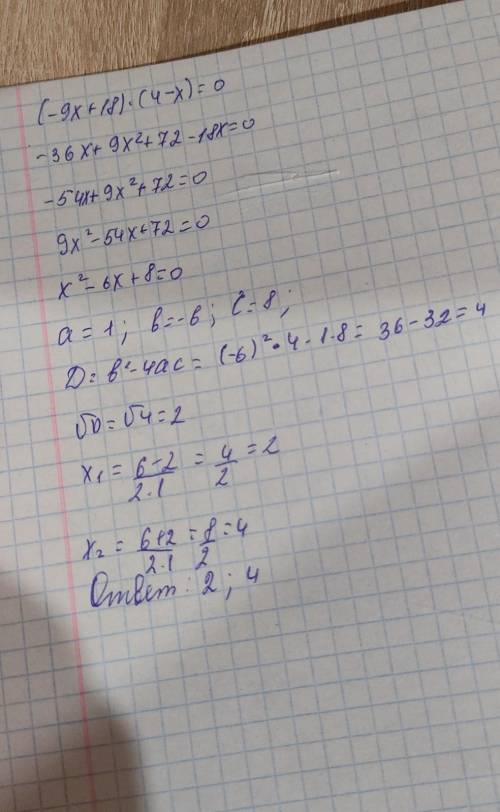 (-9x+18)·(4-x)=0
-36x+9x²+72-18x=0
-54x+9x²+72=0
9x²-54x+72=0
x²-6x+8=0
a=1; b=-6; c=8;
D=b²-4ac=(-6)²·4-1·8=36-32=4
√D=√4=2
x₁=(6-2)/(2·1)=4/2=2
x₂=(6+2)/(2·1)=8/2=4
Ответ: 2; 4